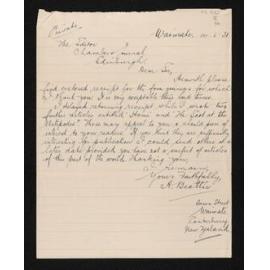 Private
Waimate 
The Editor
Chambers's Journal
Edinburgh
Dear Sir,
Herewith please
find enclosed receipt for the four guineas for which
I thank you. It is my
I delayed returning receipt while I wrote two
further articles entitled "Home and The East of the
Antipodes". These may appeal to you &
interest to your readers. If you think they are sufficiently
interesting for publication I could send others at a
later date provided you have not a surfeit of articles
of this part of the world. Thanking you,
I remain
Yours faithfully
H. Beattie
Street
Waimate
Canterbury
New Zealand